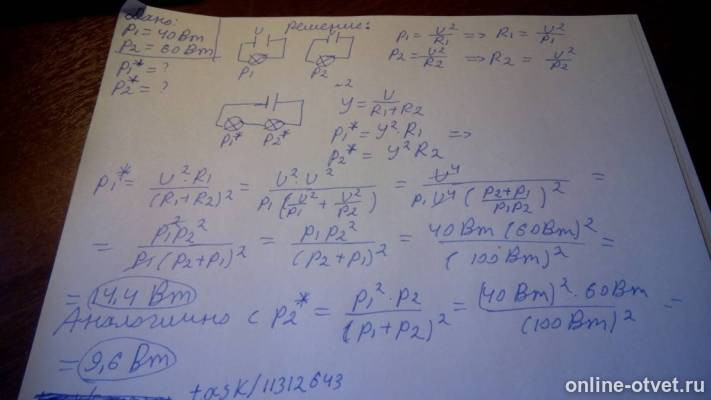 Дано:
P1 = 40 Вт
P2 = 60 Вт
P1* = ?
P2* = ?
Решение:
U U
P1 P2
P1 = U²/R1 => R1 = U²/P1
P2 = U²/R2 => R2 = U²/P2
P1* P2*
У = U/(R1+R2)
P1* = У² · R1 =>
P2* = У² R2
P1* = U² · R1/(R1+R2)² = U² · U²/(P1 (U²/P1 + U²/P2)²) = U⁴/(P1 U⁴ ((P2+P1)/(P1P2))²) =
= P1² P2²/(P1 (P2+P1)²) = P1 P2²/(P2+P1)² = 40 Вт (60 Вт)²/(100 Вт)² =
= 14,4 Вт
Аналогично с P2* = P1² · P2/(P1+P2)² = (40 Вт)² · 60 Вт/(100 Вт)² =
= 9,6 Вт
task/11312643
online-otvet.ru